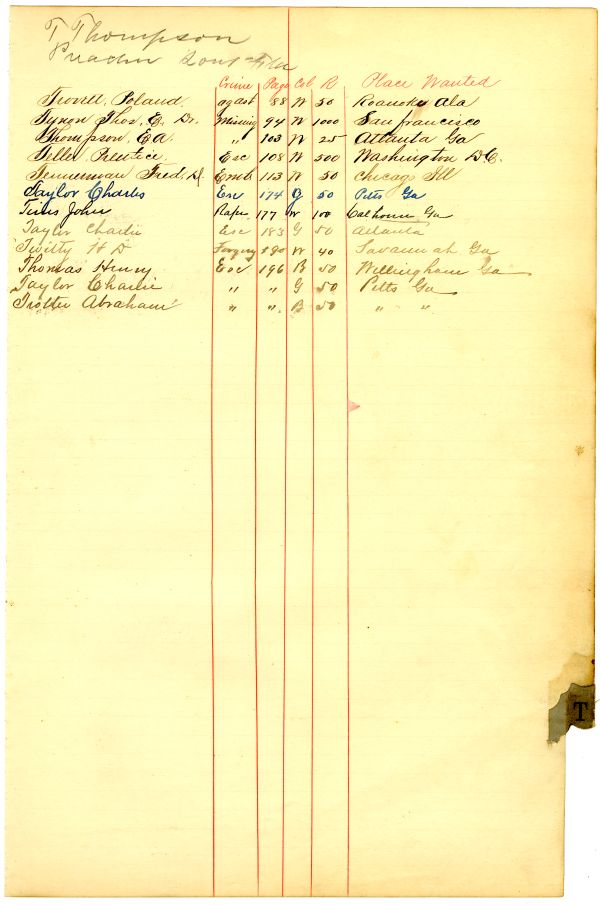 T Thompson
Crime Page Col R Place Wanted
Terrell, Poland. 88 W 50 Roanoke Ala
Tynon Thos, E. Dr. Missing 94 W 1000 San francisco
Thompson, Ed. " 103 W 25 Atlanta Ga
Teller Prentice. Esc 108 W 500 Washington D.C.
Tennerman Fred. D. Emb 113 W 50 Chicago Ill
Taylor Charles Esc 174 G 50 Pitts Ga
Tims John Rape 177 W 100 Calhoun Ga
Taylor Charlie Esc 183 G 50 Atlanta
Twitty H D Forgery 190 W 40 Savannah Ga
Thomas Henry Esc 196 B 50 Willingham Ga
Taylor Charlie " " G 50 Pitts Ga
Trotter Abraham " " B 50 " "
T